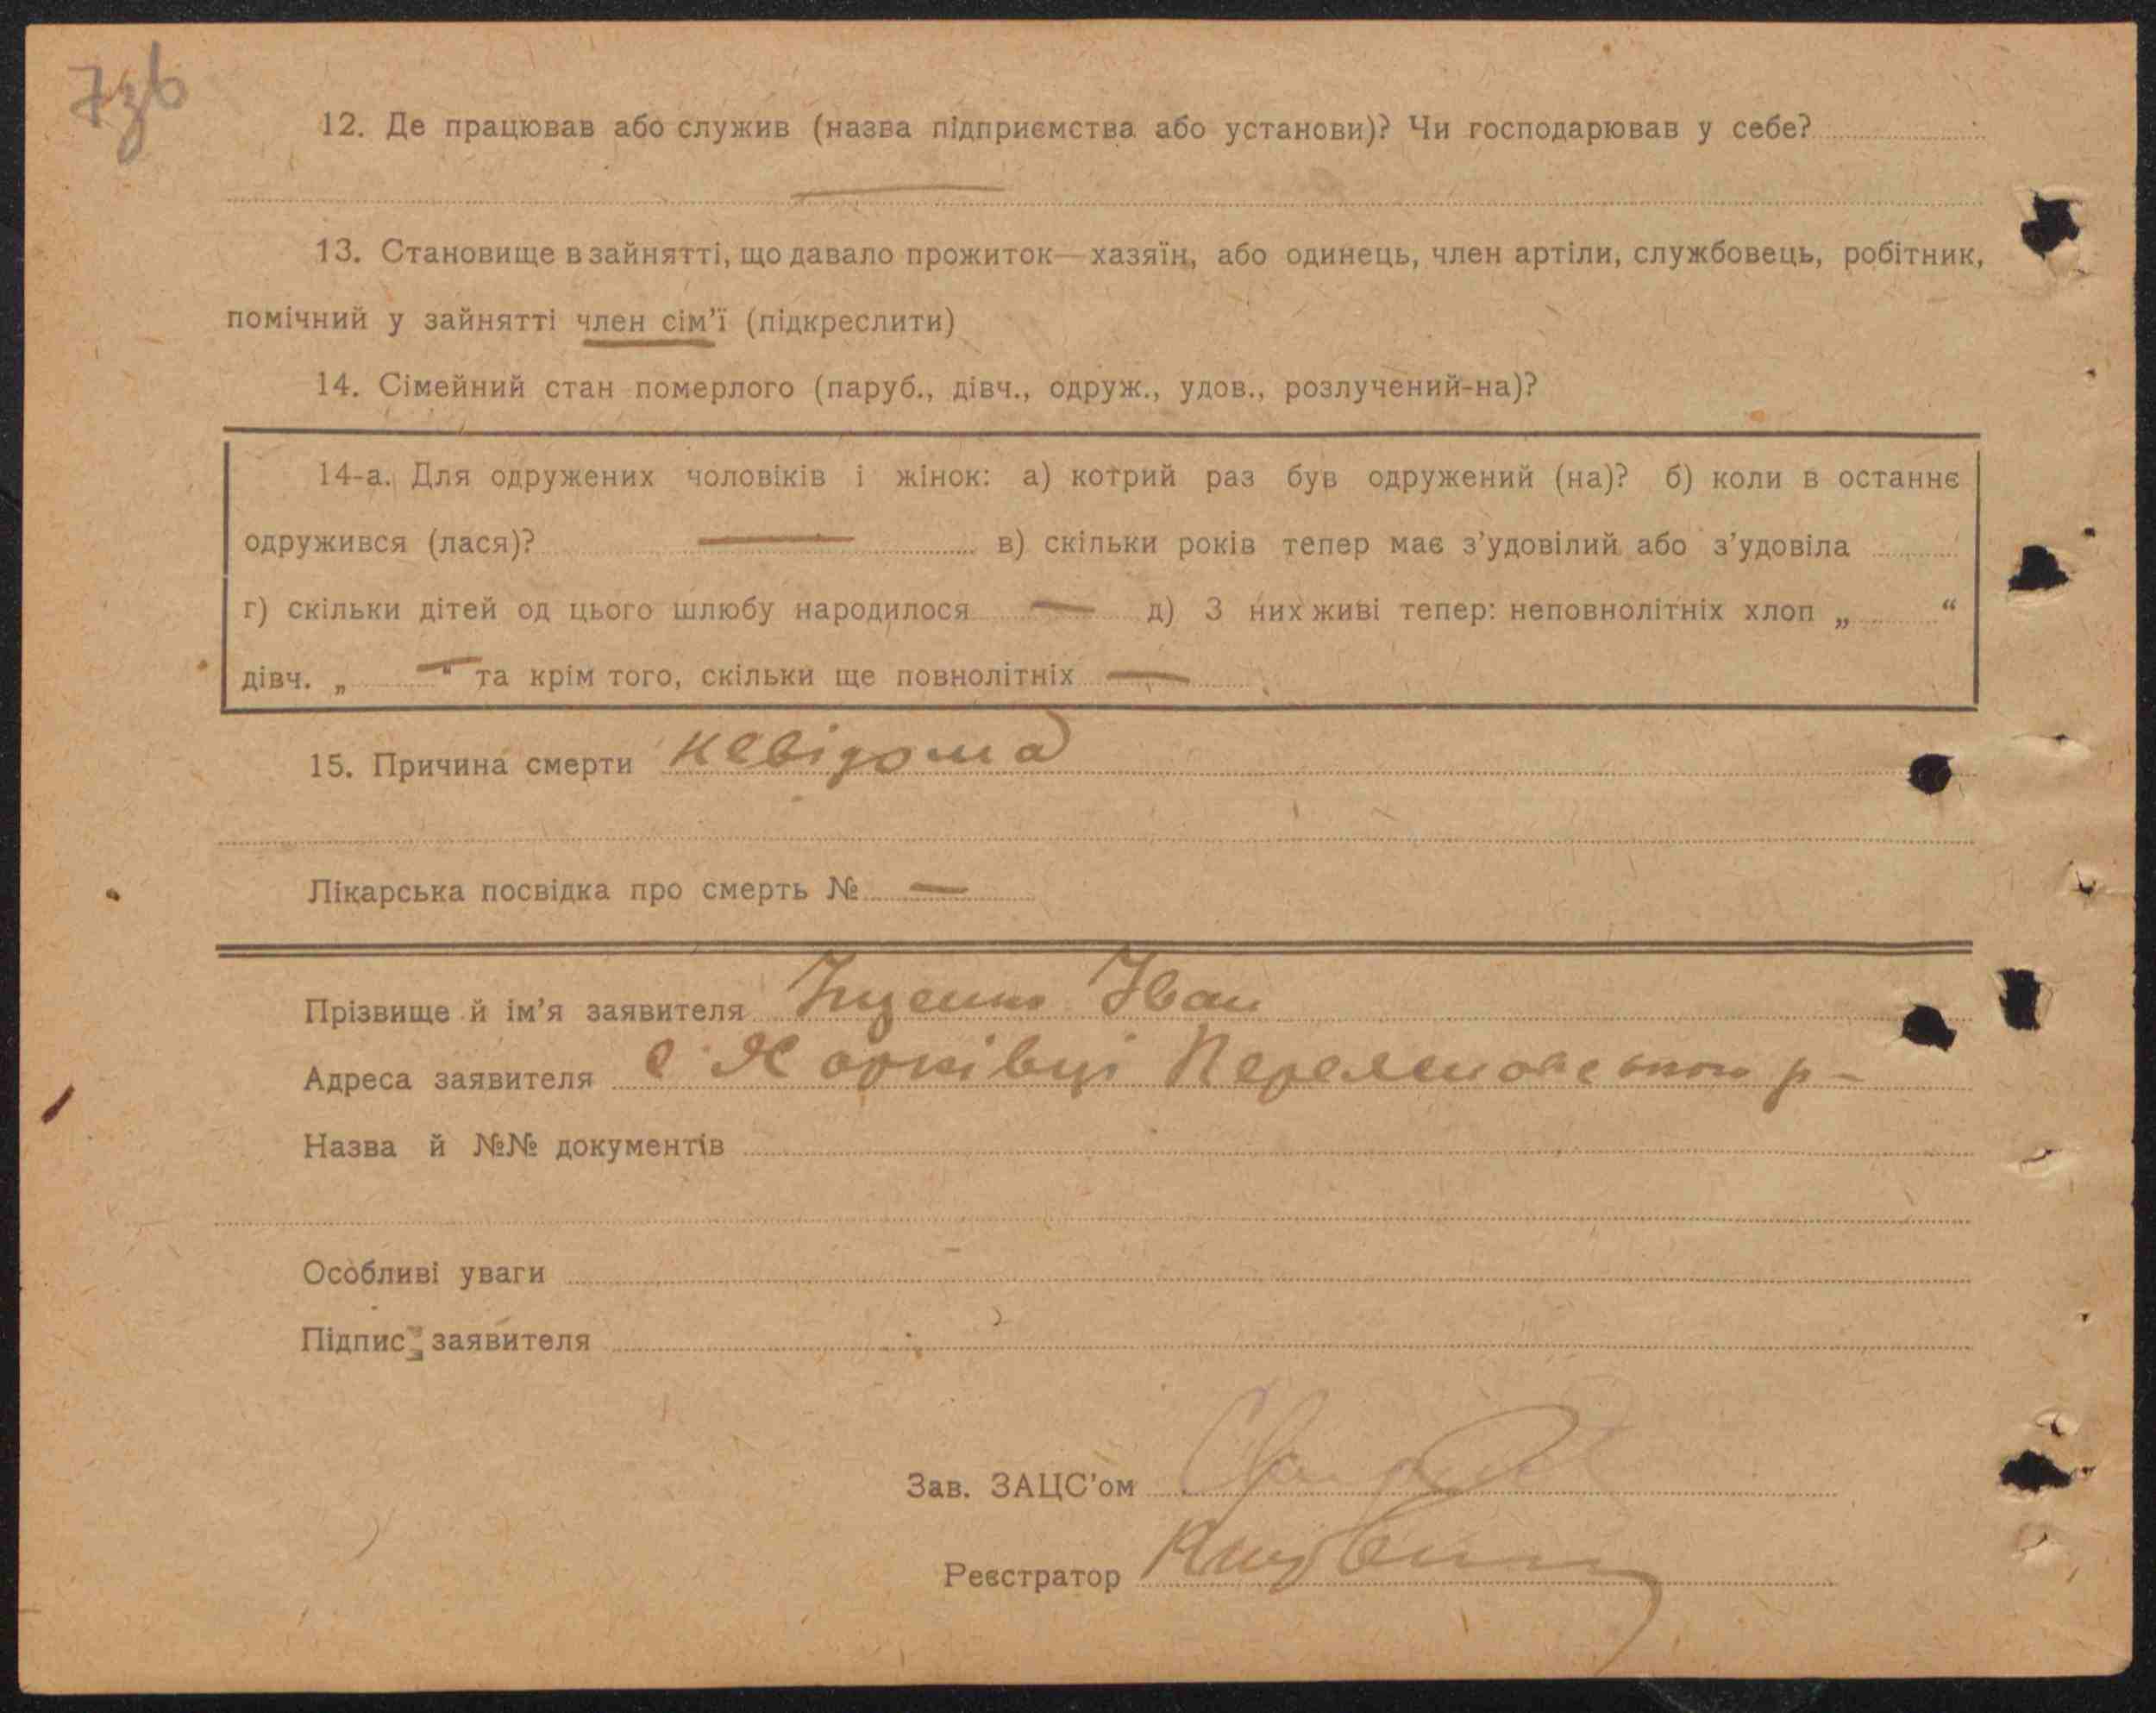 7зв
12. Де працював або служив (назва підприємства або установи)? Чи господарював у себе?
13. Становище в зайнятті, що давало прожиток—хазяїн, або одинець, член артіли, службовець, робітник,
помічний у зайнятті член сім'ї (підкреслити)
14. Сімейний стан померлого (паруб., дівч., одруж., удов., розлучений-на)?
14-а. Для одружених чоловіків і жінок: а) котрий раз був одружений (на)? б) коли в останнє
одружився (лася)? — в) скільки років тепер має з'удовілий або з'удовіла
г) скільки дітей од цього шлюбу народилося — д) З них живі тепер: неповнолітніх хлоп „ “
дівч. „ — “ та крім того, скільки ще повнолітніх —
15. Причина смерти невідома
Лікарська посвідка про смерть № —
Прізвище й ім'я заявителя Іван
Адреса заявителя с Харківці р-
Назва й №№ документів
Особливі уваги
Підпис заявителя
Зав. ЗАЦС'ом
Реєстратор